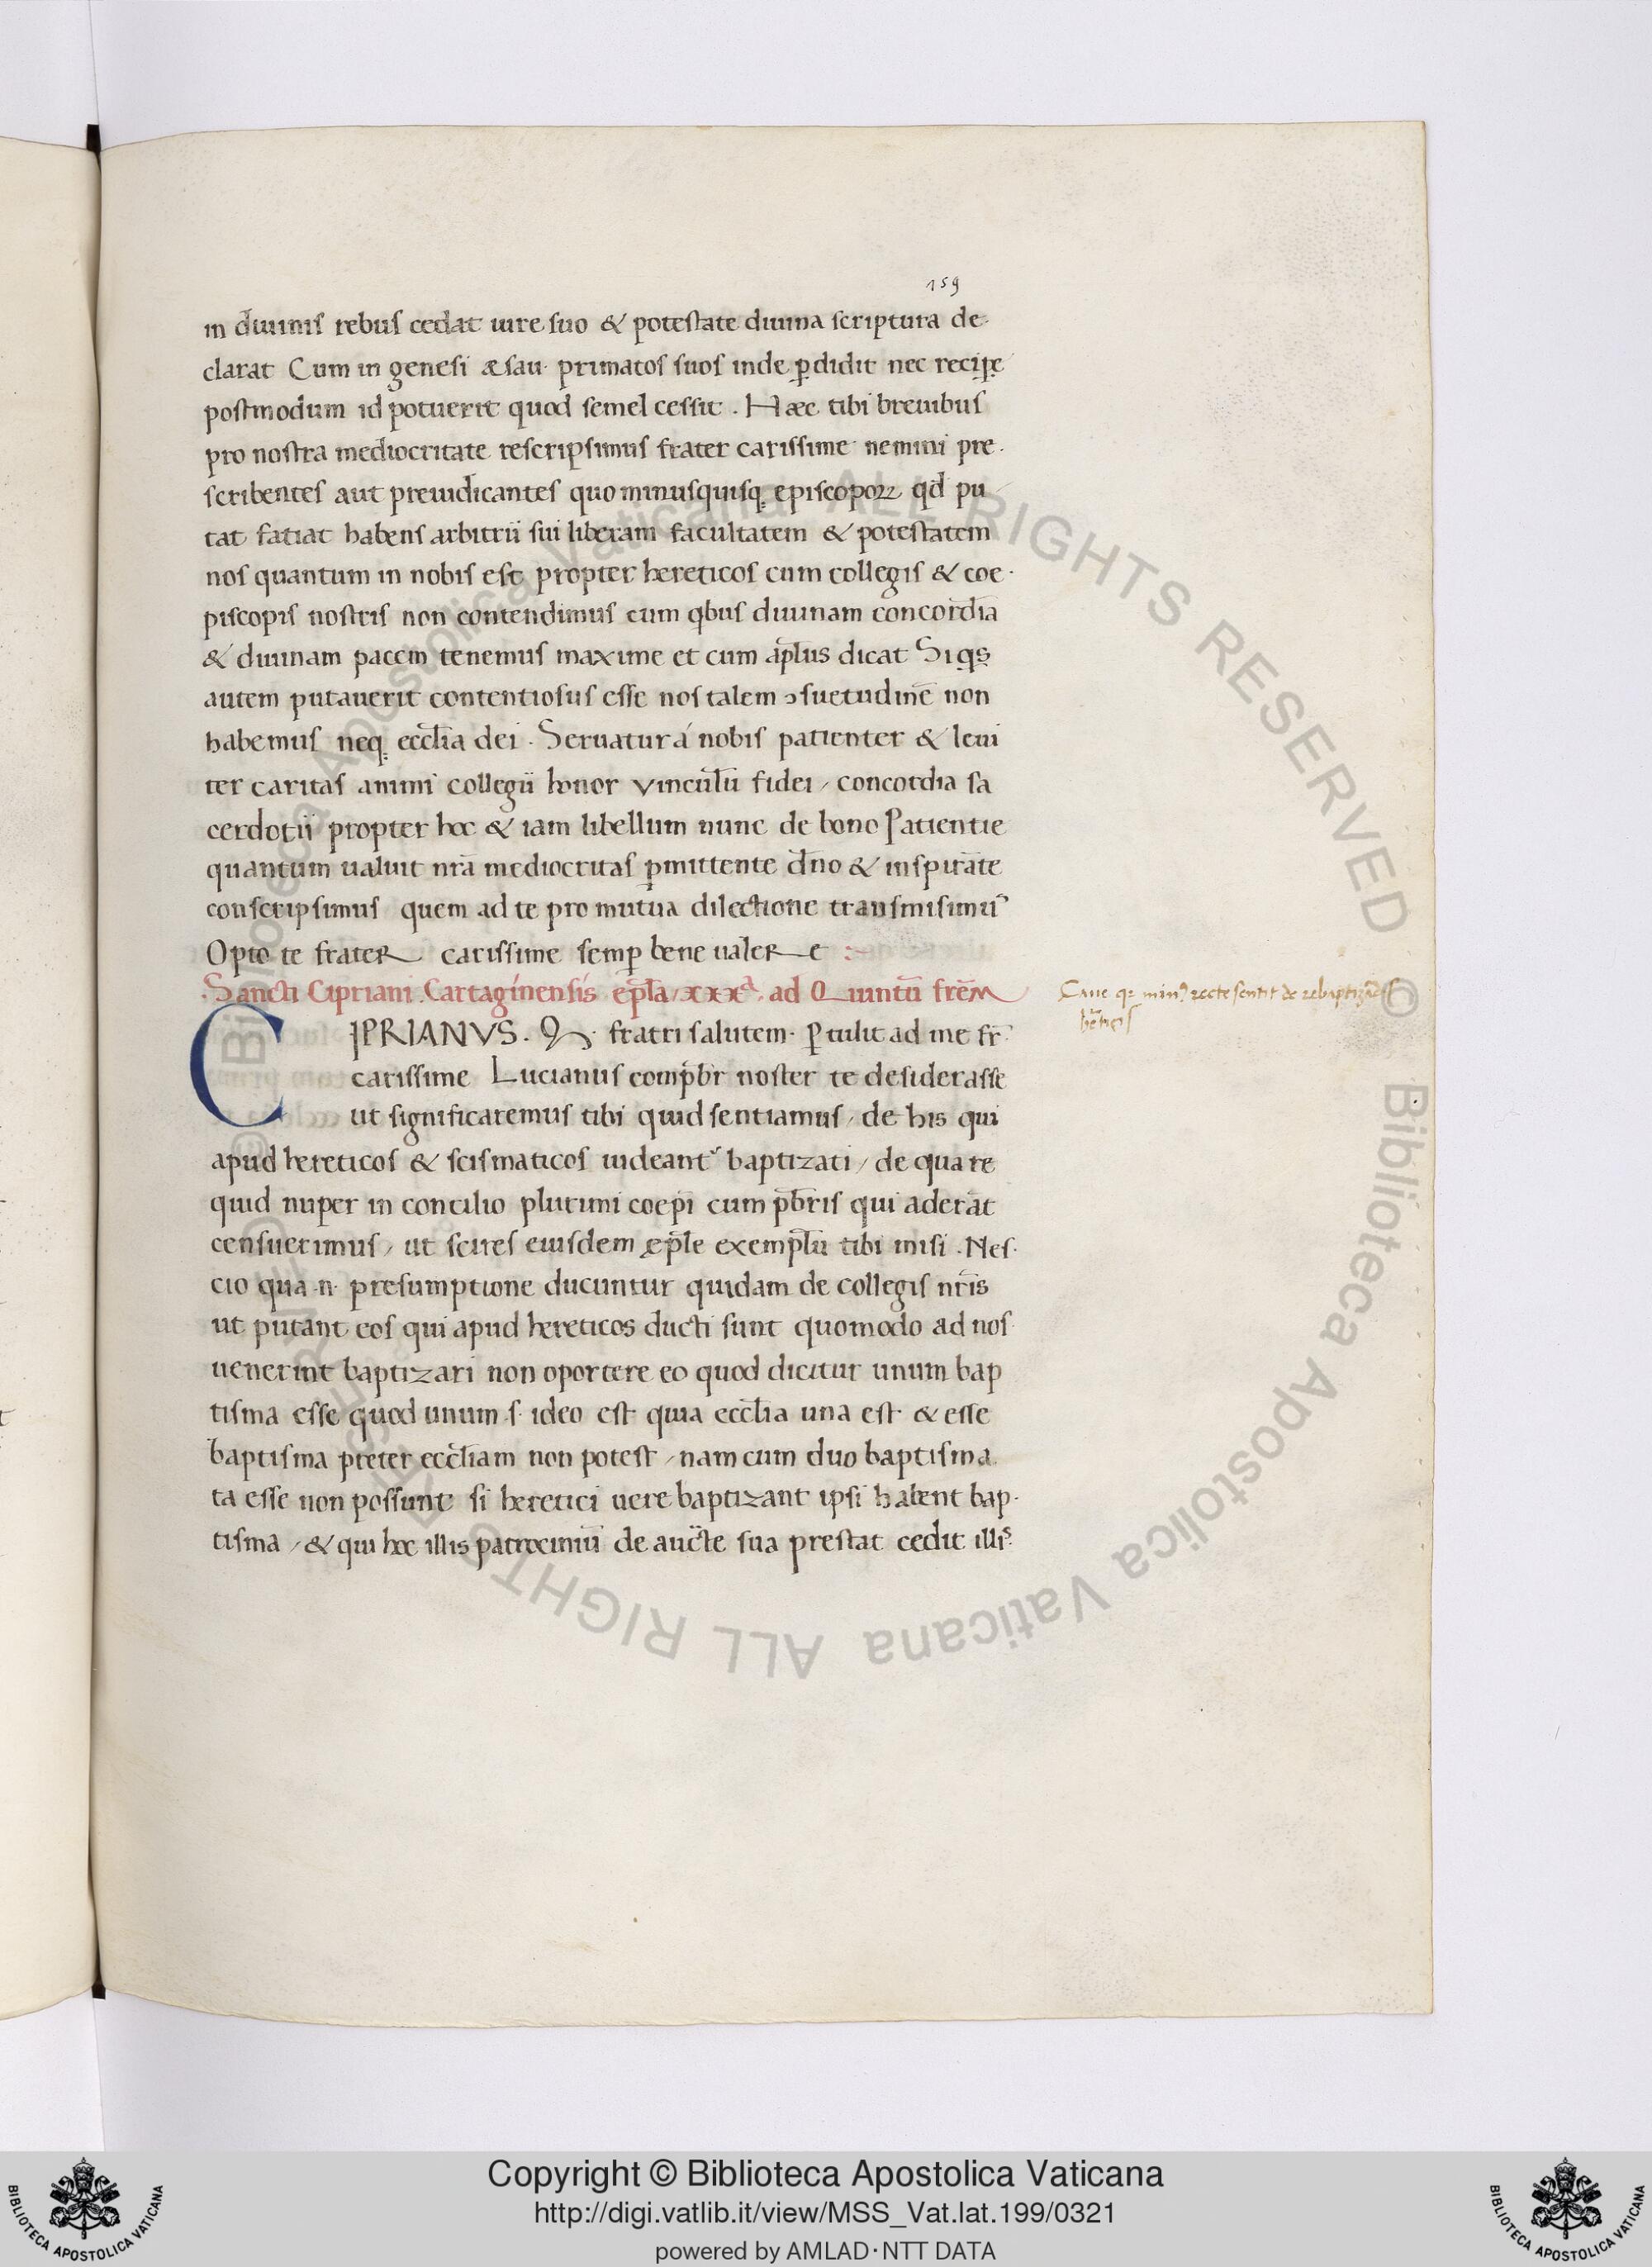 159
in diuinis rebus cedat iure suo & potestate diuina scriptura de-
clarat Cum in genesi æsau primatos suos inde ꝑdidit nec recipe
postmodum id potuerit quod semel cessit . Hæc tibi breuibus
pro nostra mediocritate rescripsimus frater carissime nemini pre-
scribentes aut preiudicantes quo minusquisq; episcopoꝝ qd̄ pu
tat fatiat habens arbitrii sui liberam facultatem & potestatem
nos quantum in nobis est propter hereticos cum collegis & coe-
piscopis nostris non contendimus cum qbus diuinam concordia
& diuinam pacem tenemus maxime et cum ap̄lus dicat Si qs
autem putauerit contentiosus esse nos talem ↄsuetudinē non
habemus neq; eccl̄ia dei . Seruatur á nobis patienter & leui
ter caritas animi collegii honor vinculū fidei / concordia sa
cerdotii propter hoc & iam libellum nunc de bono Patientie
quantum ualuit nr̄a mediocritas ꝑmittente dn̄o & inspirāte
conscripsimus quem ad te pro mutua dilectione transmisimꝰ
Opto te frater carissime semꝑ bene ualere :~
Sancti Cipriani . Cartaginensis ep̄la / xxxᵃ . ad Quintū frēm
Caue qꝫ minꝰ recte sentit de rebaptizādis
hēticis
CIPRIANVS . Q. fratri salutem . Ꝑtulit ad me fr̄
carissime Lucianus comp̄br noster te desiderasse
ut significaremus tibi quid sentiamus / de his qui
apud hereticos & scismaticos uideantᵉ baptizati / de qua re
quid nuper in concilio plurimi coepī cum pb̄ris qui aderāt
censuerimus / ut scires eiusdem ep̄le exemplū tibi misi . Nes-
cio qua .n. presumptione ducuntur quidam de collegis nr̄is
ut putant eos qui apud hereticos ducti sunt quomodo ad nos
uenerint baptizari non oportere eo quod dicitur unum bap
tisma esse quod unum .s. ideo est quia eccl̄ia una est & esse
baptisma preter eccl̄iam non potest / nam cum duo baptisma
ta esse non possunt si heretici uere baptizant ipsi habent bap-
tisma / & qui hoc illis patrociniū de auc̄te sua prestat cedit illis
© Biblioteca Apostolica Vaticana ALL RIGHTS RESERVED
© Biblioteca Apostolica Vaticana ALL RIGHTS RESERVED
Copyright © Biblioteca Apostolica Vaticana
http://digi.vatlib.it/view/MSS_Vat.lat.199/0321
powered by AMLAD·NTT DATA
BIBLIOTECA APOSTOLICA VATICANA
BIBLIOTECA APOSTOLICA VATICANA